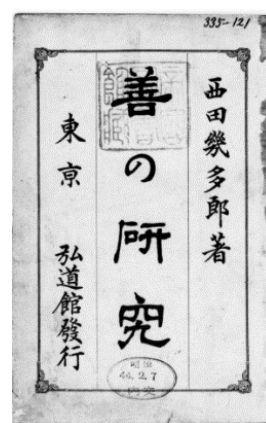 335-121
西田幾多郎著
善の研究
東京
弘道館發行
44.2.7